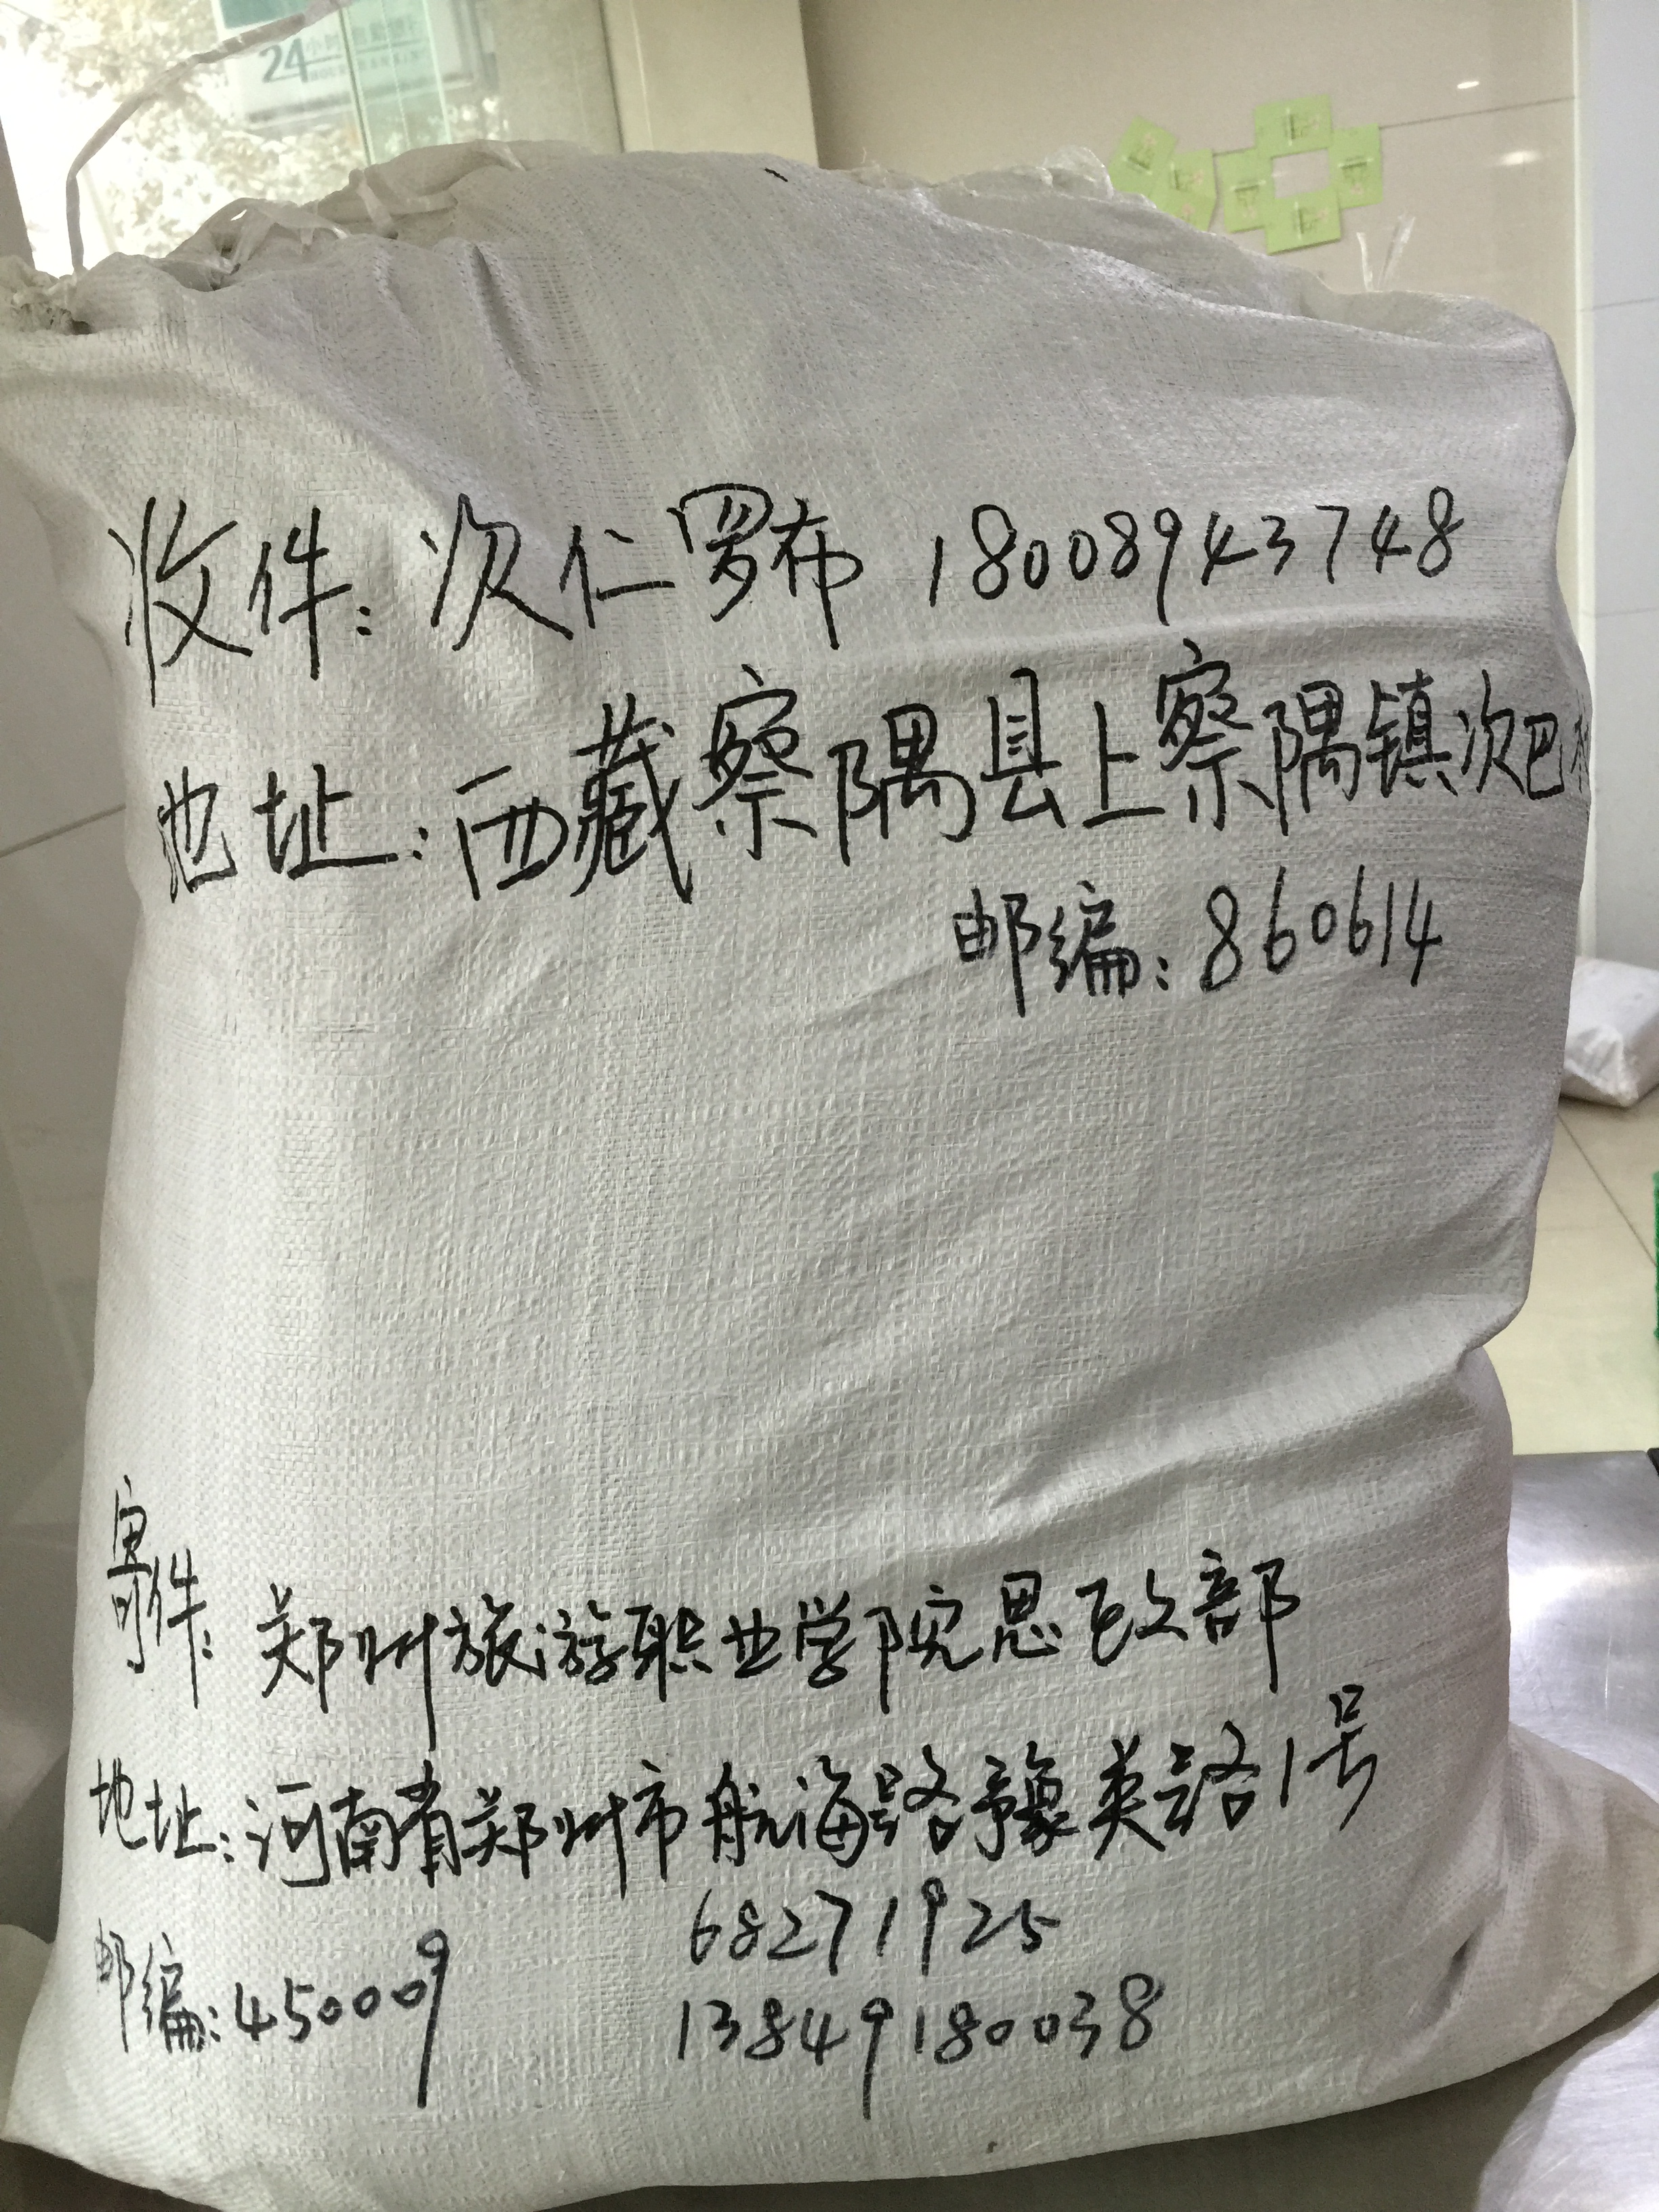 24小时
收件:次仁罗布 18008943748
地址:西藏察隅县上察隅镇次巴村
邮编:860614
寄件:郑州旅游职业学院思政部
地址:河南省郑州市航海路豫英路1号
68271925
邮编:450009
13849180038